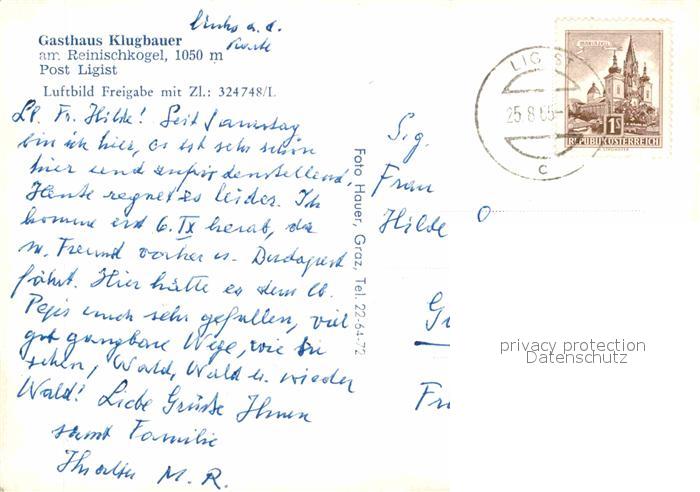 links a. d.
Karte
Gasthaus Klugbauer
am Reinischkogel, 1050 m
Post Ligist
Luftbild Freigabe mit Zl.: 324748/L
Lb. Fr. Hilde! Seit Samstag
bin ich hier, es ist sehr schön
hier und zufriedenstellend,
Heute regnet es leider. Ich
komme erst 6. IX herab, da
m. Freund vorher n. Budapest
fährt. Hier hätte es dem lb.
Pepi auch sehr gefallen, viel
gut gangbare Wege, wie Sie
sehen, Wald, Wald u. wieder
Wald! Liebe Grüße Ihnen
samt Familie
M. R.
Foto Hauer, Graz, Tel. 22-64-72
LIGIST
25.8.65-
C
MARIAZELL
1S
REPUBLIK ÖSTERREICH
Sig.
Frau
Hilde
privacy protection
Datenschutz